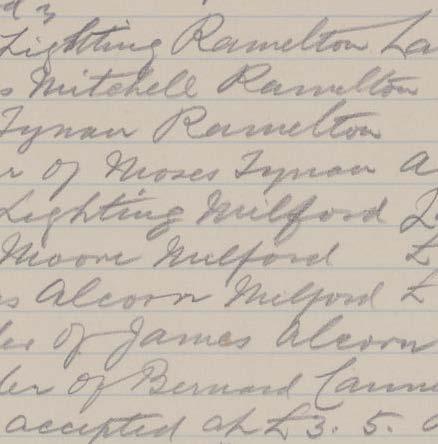 Lighting Ramelton La
s Mitchell Ramelton
Tynan Ramelton
r of Moses Tynan a
Lighting Milford
Moore Milford £
es Alcorn Milford £
der of James Alcorn
der of Bernard Cann
accepted at £3. 5.